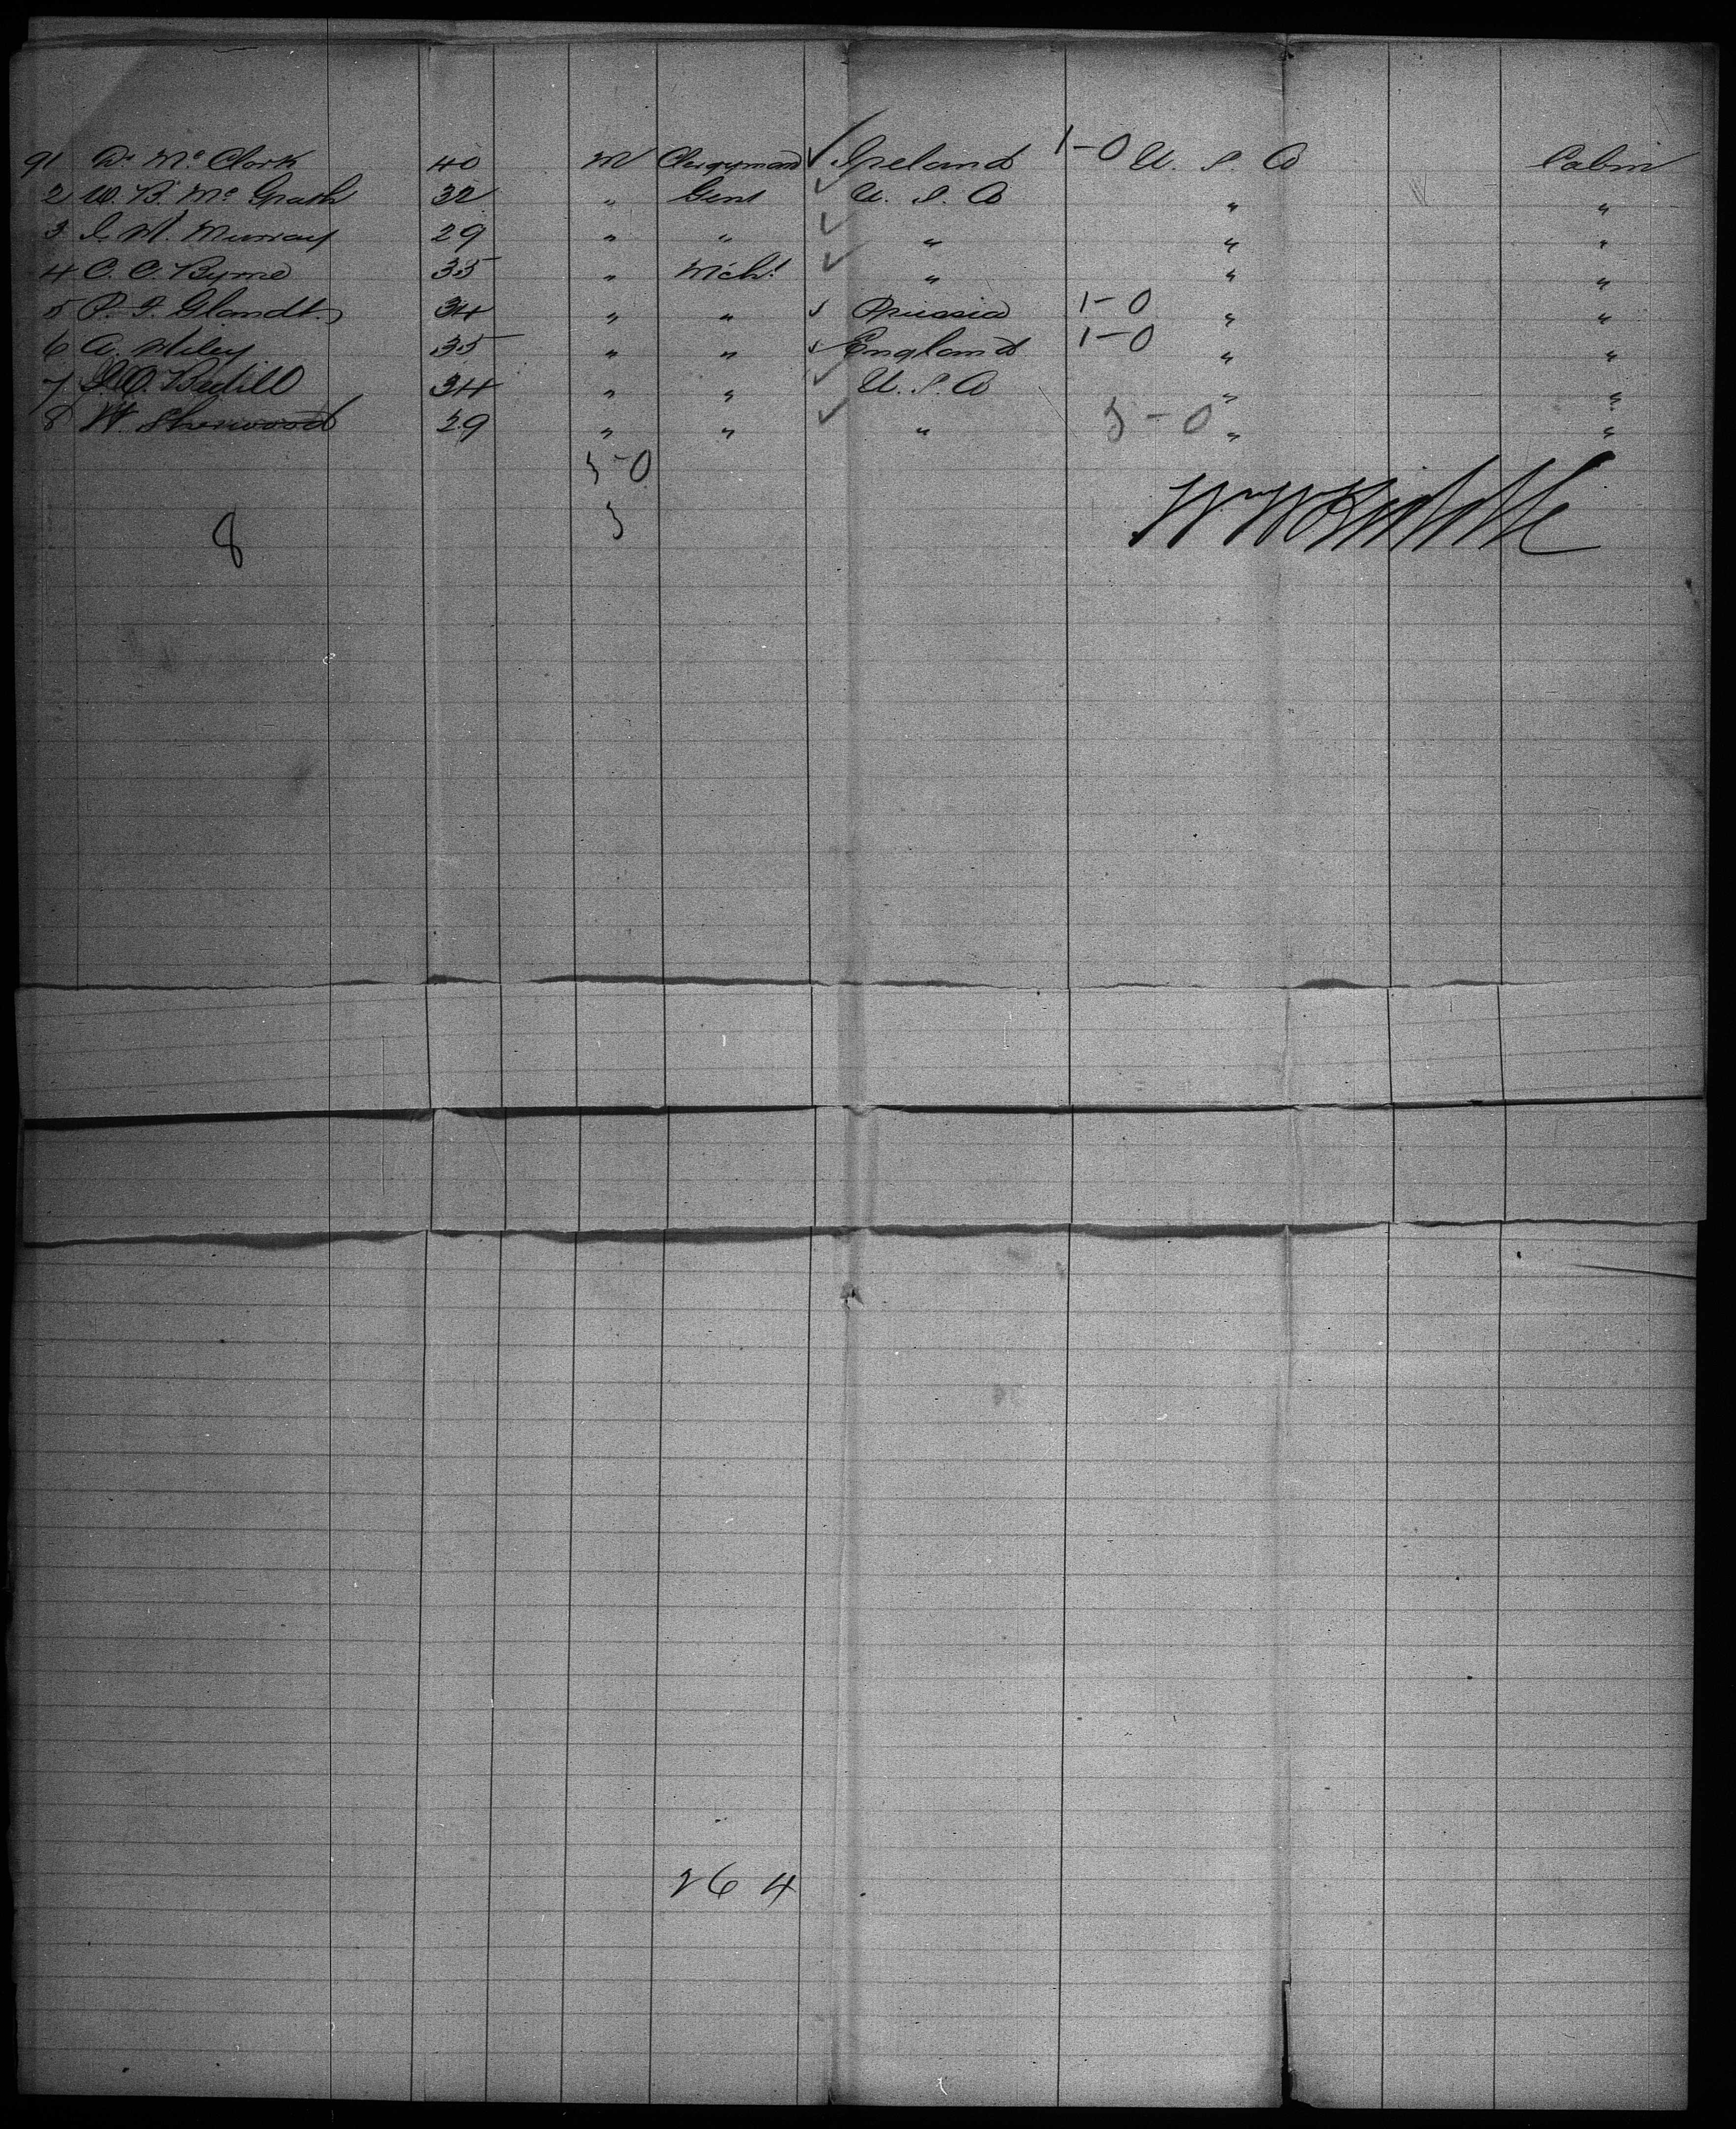 91 D. Mc Clork 40 M Clergyman ✓ Ireland 1-0 U. S. A Cabin
2 W. B. Mc Grath 32 " Gent ✓ U. S. A " "
3 W. Murray 29 " " ✓ " " "
4 C. C. Byrne 35 " Mcht ✓ " " "
5 P. F. Glandt 34 " " ✓ Prussia 1-0 " "
6 A. Wiley 35 " " ✓ England 1-0 " "
7 34 " " ✓ U. S. A " "
8 W. Sherwood 29 " " ✓ " 3-0 " "
3-0
8 3
264